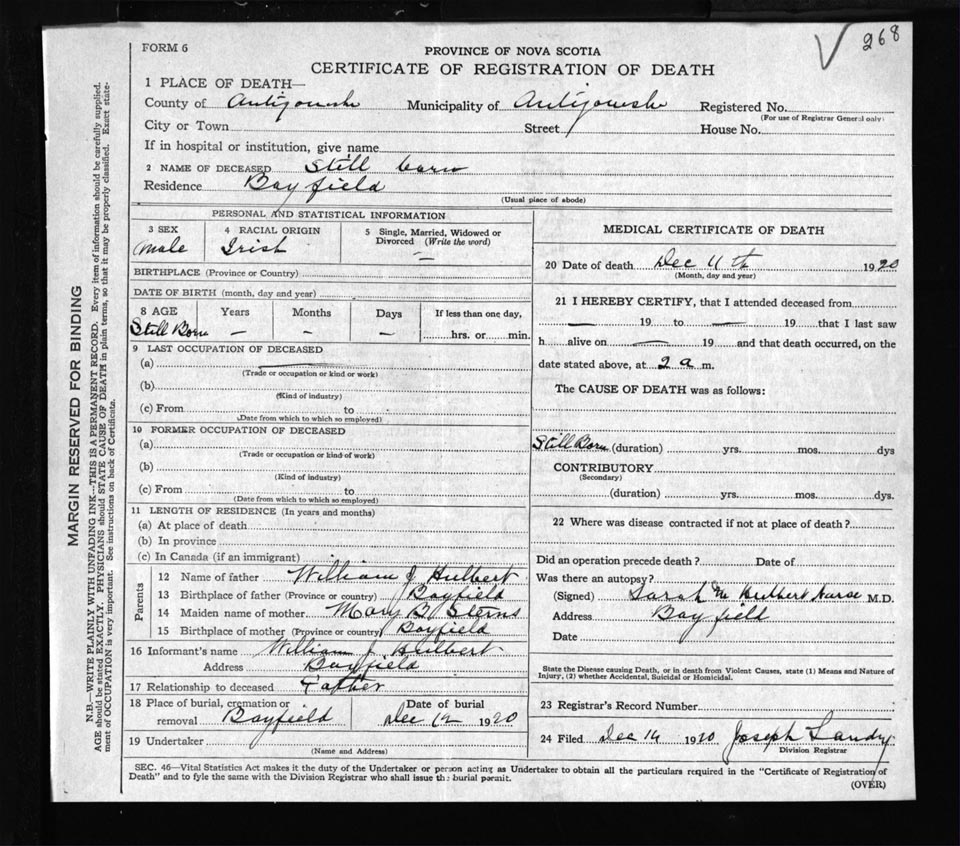 268
FORM 6
PROVINCE OF NOVA SCOTIA
CERTIFICATE OF REGISTRATION OF DEATH
1 PLACE OF DEATH—
County of Antigonish Municipality of Antigonish Registered No.
(For use of Registrar General only)
City or Town Street House No.
If in hospital or institution, give name
2 NAME OF DECEASED Still born
Residence Bayfield
(Usual place of abode)
PERSONAL AND STATISTICAL INFORMATION
3 SEX 4 RACIAL ORIGIN 5 Single, Married, Widowed or Divorced (Write the word)
Male Irish —
BIRTHPLACE (Province or Country)
DATE OF BIRTH (month, day and year)
8 AGE Years Months Days If less than one day,
Still Born — — — hrs. or min.
9 LAST OCCUPATION OF DECEASED
(a)
(Trade or occupation or kind or work)
(b)
(Kind of industry)
(c) From to
(Date from which to which so employed)
10 FORMER OCCUPATION OF DECEASED
(a)
(Trade or occupation or kind of work)
(b)
(Kind of industry)
(c) From to
(Date from which to which so employed)
11 LENGTH OF RESIDENCE (In years and months)
(a) At place of death
(b) In province
(c) In Canada (if an immigrant)
Parents
12 Name of father William J Hulbert
13 Birthplace of father (Province or country) Bayfield
14 Maiden name of mother Mary B Sterns
15 Birthplace of mother (Province or country) Bayfield
16 Informant's name William J Hulbert
Address Bayfield
17 Relationship to deceased Father
18 Place of burial, cremation or removal Bayfield Date of burial Dec 12 1920
19 Undertaker
(Name and Address)
MEDICAL CERTIFICATE OF DEATH
20 Date of death Dec 11th 1920
(Month, day and year)
21 I HEREBY CERTIFY, that I attended deceased from
— 19 to — 19 that I last saw
h alive on — 19 and that death occurred, on the
date stated above, at 2 a m.
The CAUSE OF DEATH was as follows:
Still Born (duration) yrs. mos. dys
CONTRIBUTORY
(Secondary)
(duration) yrs. mos. dys.
22 Where was disease contracted if not at place of death?
Did an operation precede death? Date of
Was there an autopsy?
(Signed) Sarah M Hulbert Nurse M.D.
Address Bayfield
Date
State the Disease causing Death, or in death from Violent Causes, state (1) Means and Nature of
Injury, (2) whether Accidental, Suicidal or Homicidal.
23 Registrar's Record Number
24 Filed Dec 14 1920 Joseph Landry
Division Registrar
SEC. 46—Vital Statistics Act makes it the duty of the Undertaker or person acting as Undertaker to obtain all the particulars required in the "Certificate of Registration of
Death" and to fyle the same with the Division Registrar who shall issue the burial permit.
(OVER)
MARGIN RESERVED FOR BINDING
N.B.—WRITE PLAINLY WITH UNFADING INK—THIS IS A PERMANENT RECORD. Every item of information should be carefully supplied.
AGE should be stated EXACTLY. PHYSICIANS should STATE CAUSE OF DEATH in plain terms, so that it may be properly classified. Exact state-
ment of OCCUPATION is very important. See instructions on back of Certificate.